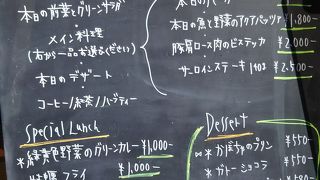 本日の前菜とグリーンサラダ
メイン料理
(右から一品お選びください)
本日のデザート
コーヒー/紅茶/ハーブティー
¥1,800-
本日の魚と野菜のアクアパッツァ
¥2,000-
豚肩ロース肉のビステッカ
サーロインステーキ 140g ¥2,500-
Special Lunch
*緑黄色野菜のグリーンカレー ¥1,000-
フライ ¥1,000-
Dessert
* かぼちゃのプリン ¥550-
* ガトーショコラ ¥550-
¥550-